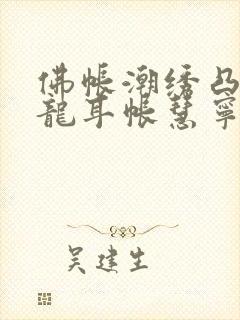 佛帐潮绣凸
龍耳帐慧寧
吴建生